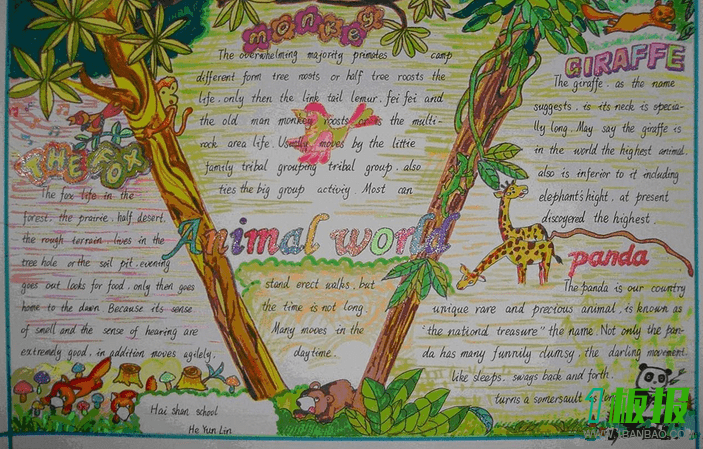 monkey
The overwhelming majority primates camp
different form tree roosts or half tree roosts the
life, only then the link tail lemur, fei fei and
the old man monkey roosts or is the multi-
rock area life. Usually moves by the little
family tribal grouping tribal group, also
ties the big group activiy. Most can
stand erect walks, but
the time is not long.
Many moves in the
daytime.
Animal world
THE FOX
The fox life in the
forest, the prairie, half desert,
the rough terrain, lives in the
tree hole or the soil pit, evening
goes out looks for food, only then goes
home to the dawn. Because its sense
of smell and the sense of hearing are
extremely good, in addition moves agilely.
GIRAFFE
The giraffe, as the name
suggests, is its neck is specia-
lly long. May say the giraffe is
in the world the highest animal.
also is inferior to it including
elephant's hight, at present
discoyered the highest.
panda
The panda is our country
unique rare and precious animal, is known as
"the nationd treasure" the name. Not only the pan-
da has many funnily clumsy, the darling movement.
like sleeps, sways back and forth,
turns a somersault
Hai shan school
He Yun Lin
1板报
WWW.1BANBAO.COM